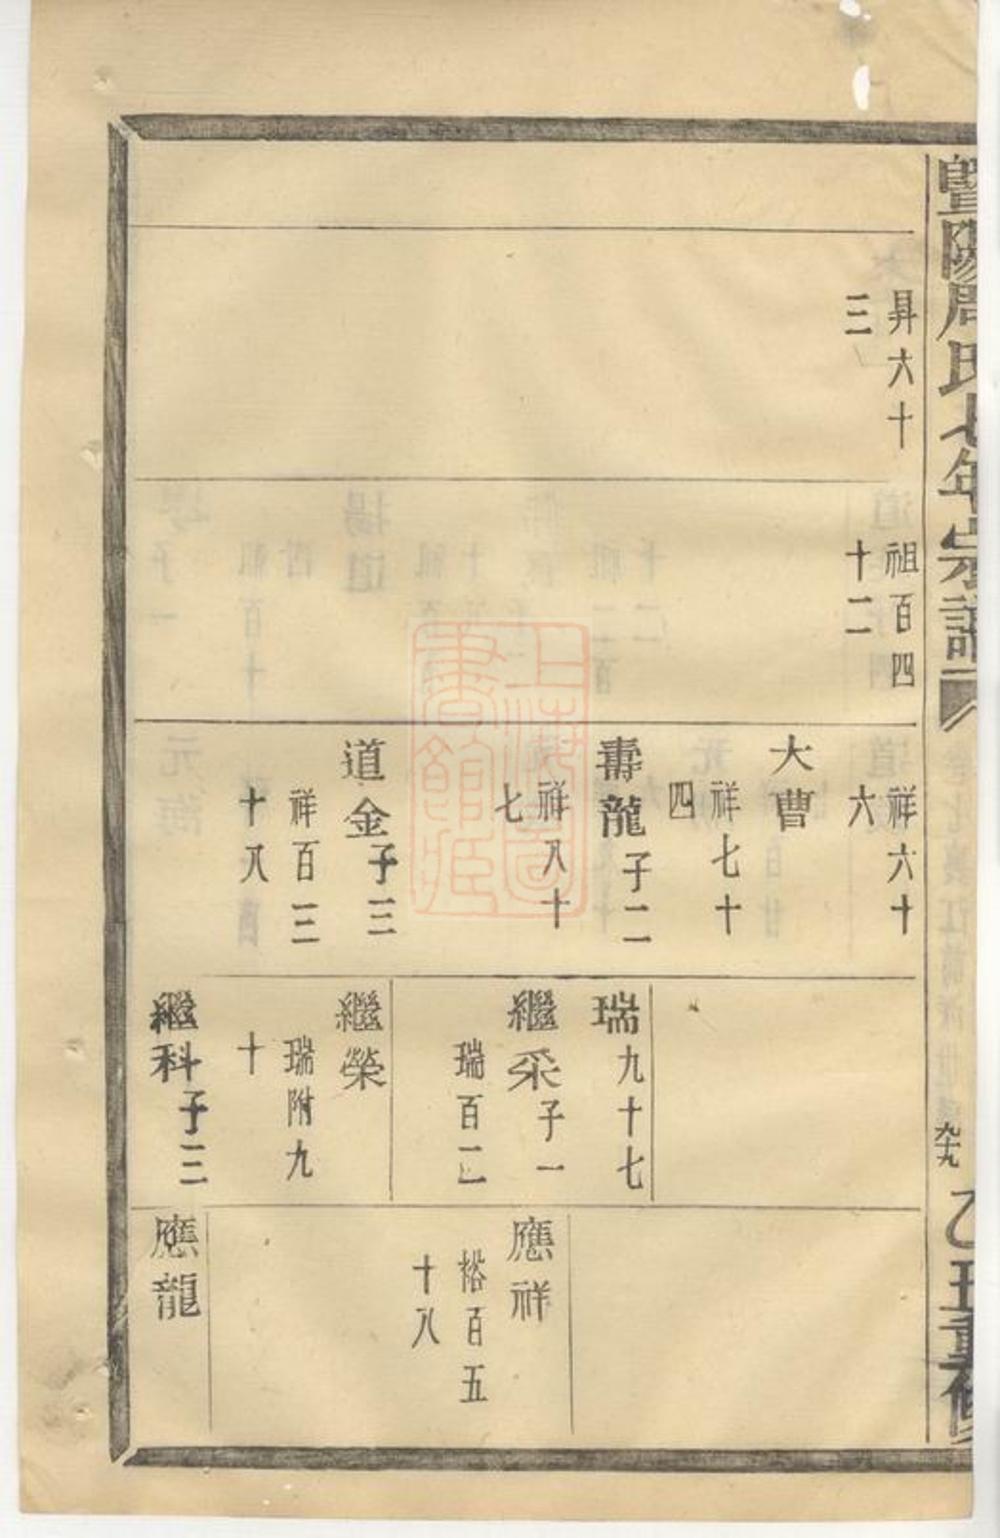 暨陽周氏七年宗譜
乙丑重修
昇六十
三
祖百四
十二
祥六十
六
大曹
祥七十
四
壽龍子二
祥八十
七
道金子三
祥百三
十八
瑞九十七
繼采子一
瑞百二
繼榮
瑞附九
十
繼科子三
應祥
裕百五
十八
應龍
上海圖書館藏